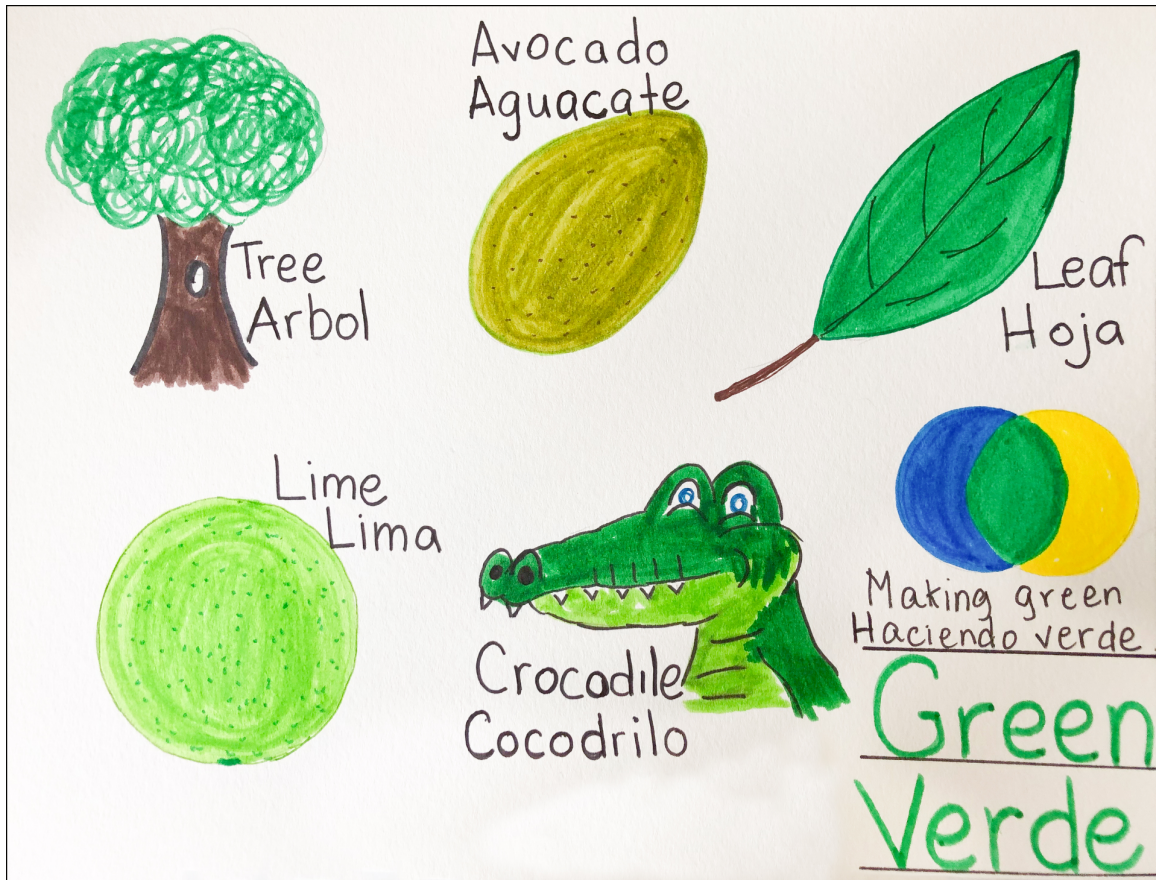 Avocado
Aguacate
Tree
Arbol
Leaf
Hoja
Lime
Lima
Crocodile
Cocodrilo
Making green
Haciendo verde
Green
Verde